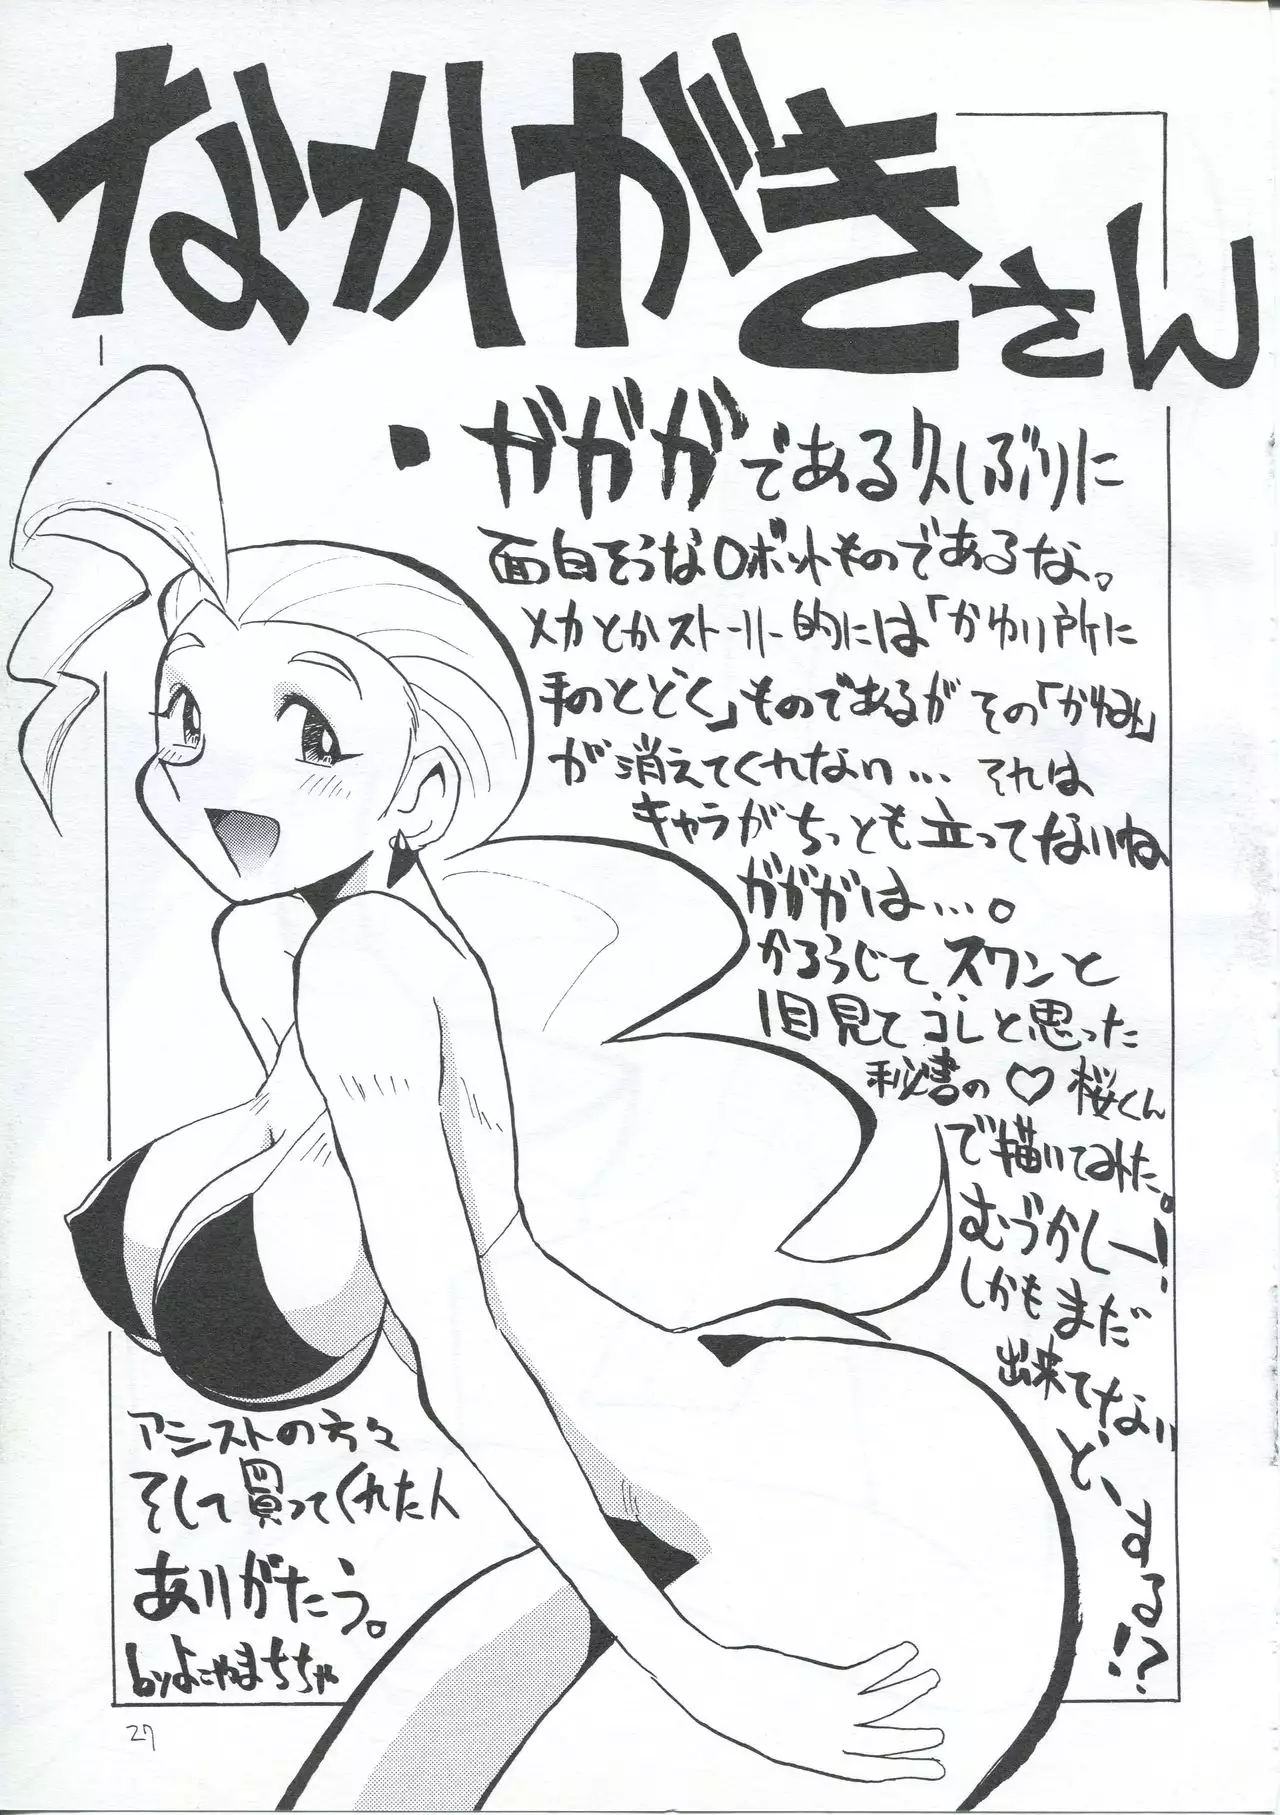 なかがきさん
・ガガガである久しぶりに
面白そうなロボットものであるな。
メカとかストーリー的には「かゆい所に
手のとどく」ものであるがその「かゆみ」
が消えてくれない…それは
キャラがちっとも立ってないね
ガガガは…。
かろうじてスワンと
1目見てコレと思った
秘書の♡桜くん
で描いてみた。
むづかしー!
しかもまだ
出来てない
ど、する?!
アシストの方々
そして買ってくれた人
ありがたう。
byよこやまちちゃ
27